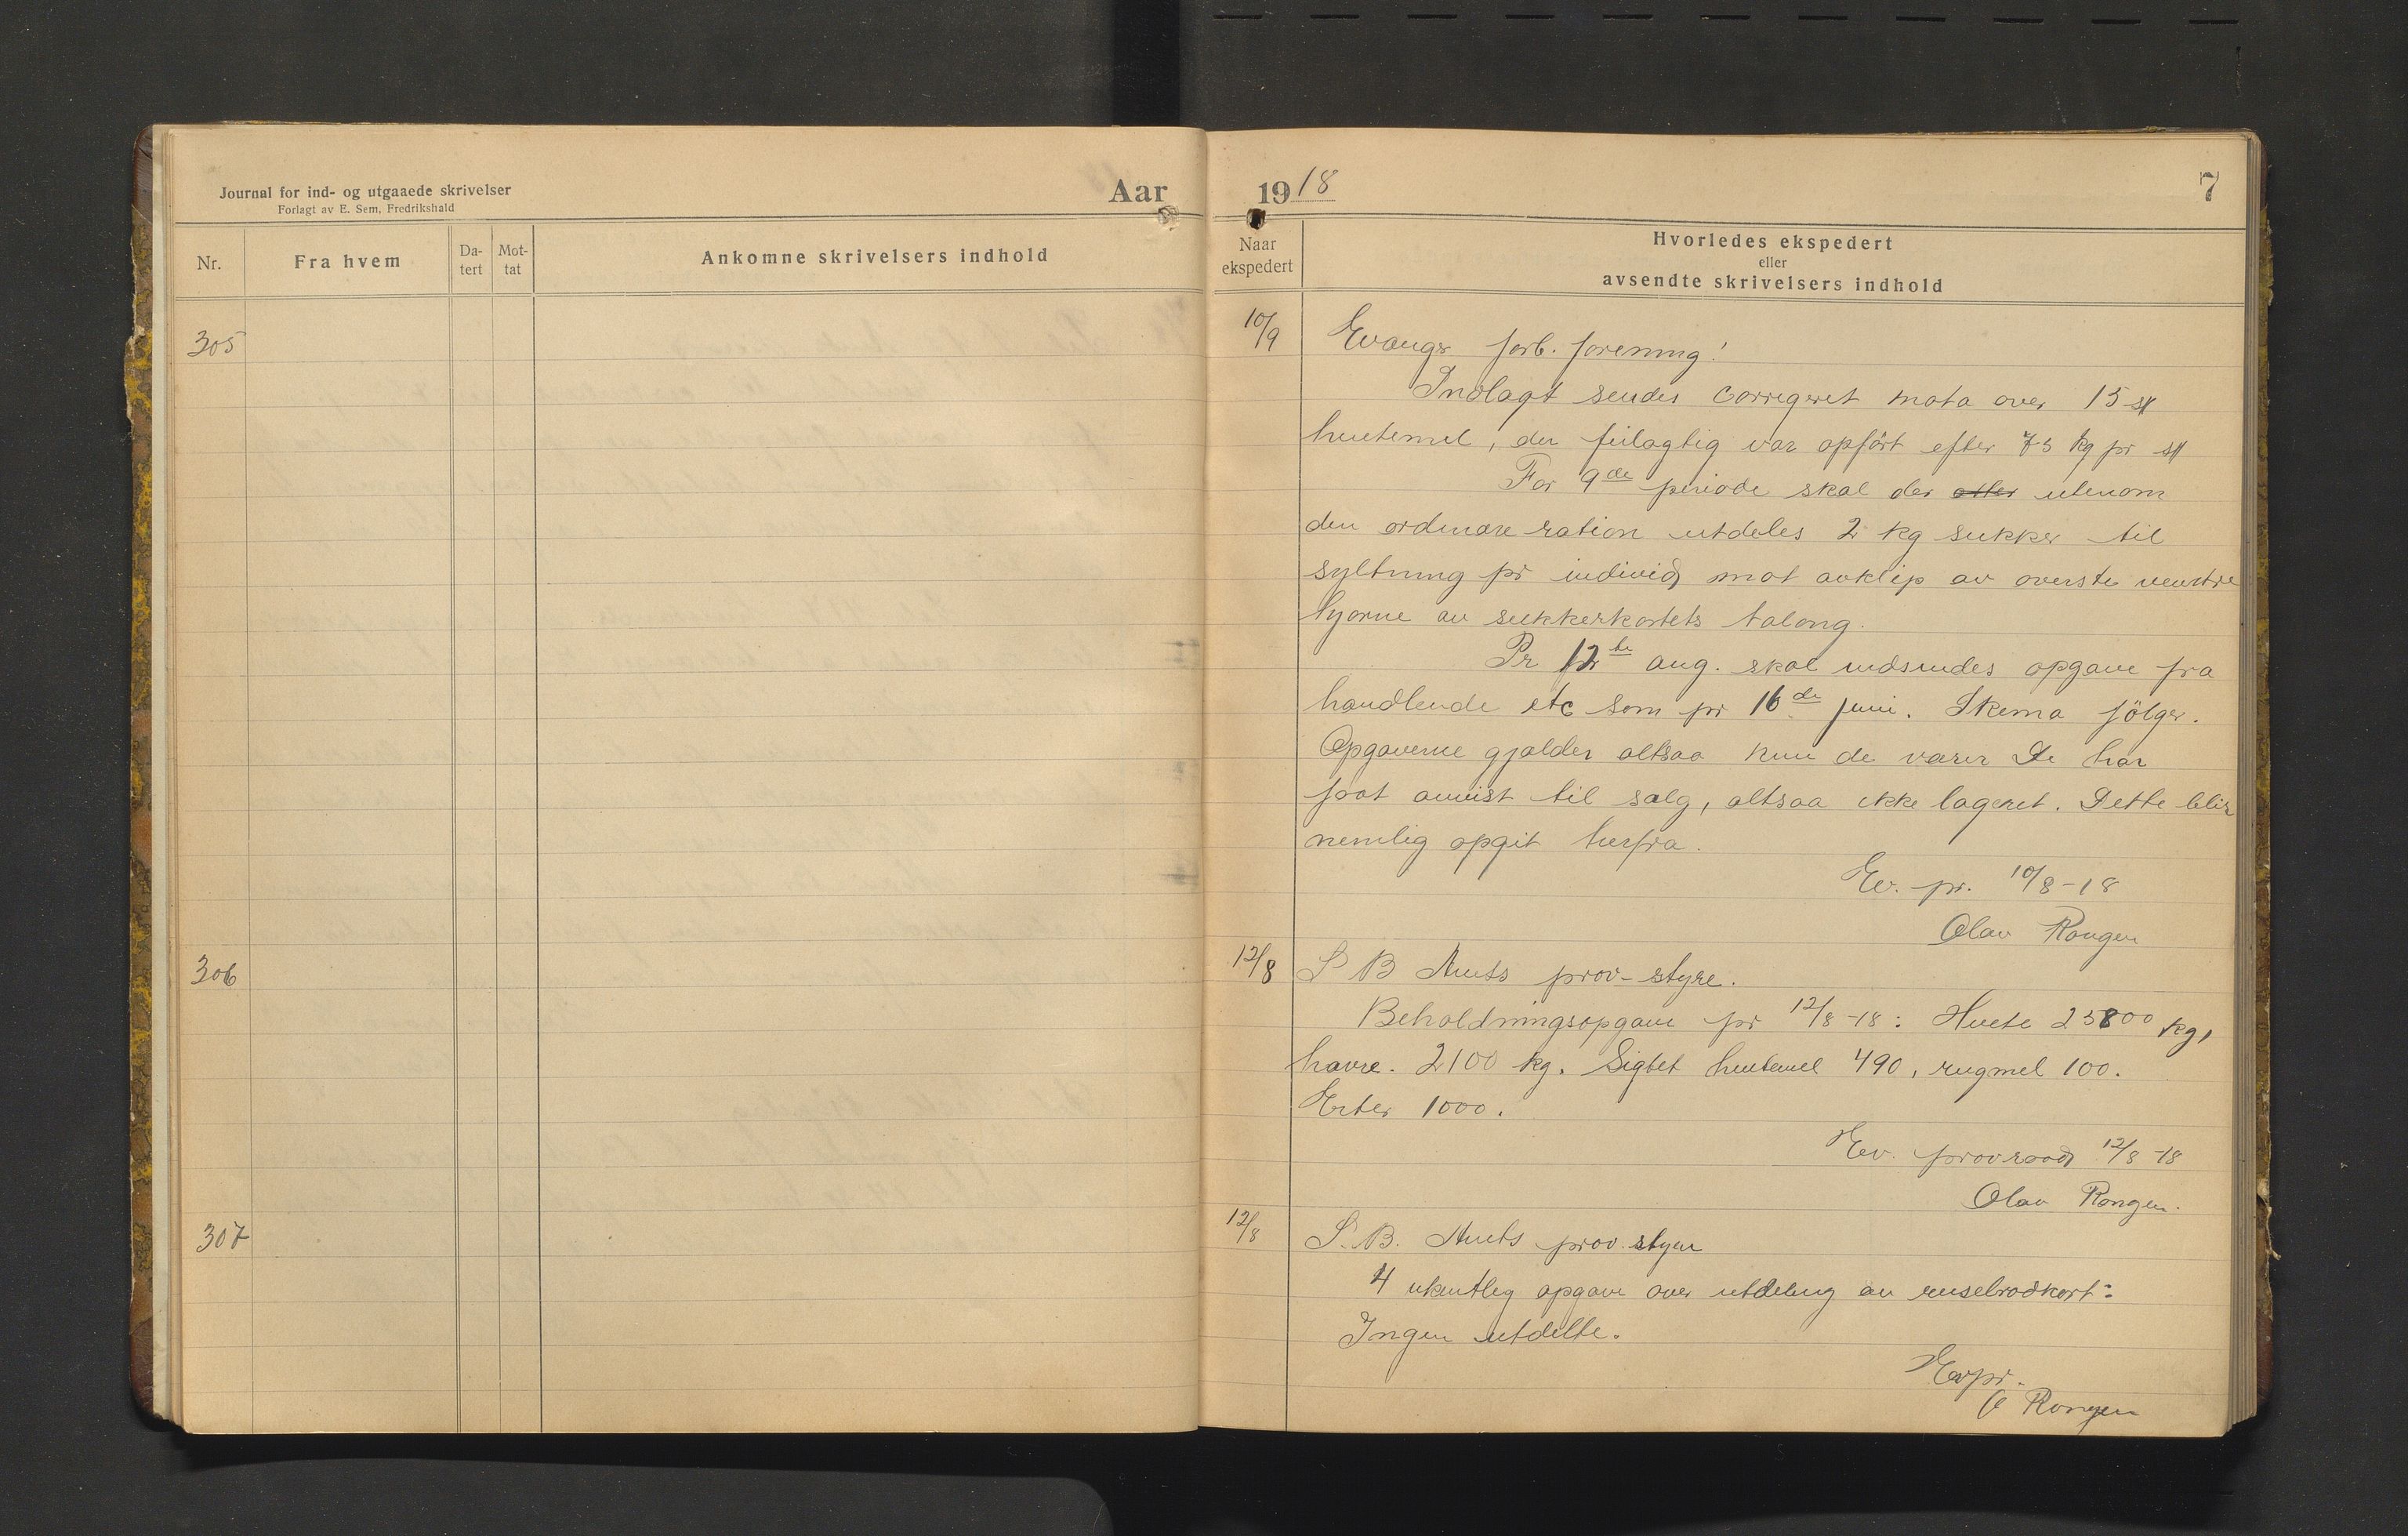 Journal for ind- og utgaaede skrivelser
Forlagt av E. Sem, Fredrikshald
Aar
1918
7
Nr.
Fra hvem
Da-
tert
Mot-
tat
Ankomne skrivelsers indhold
Naar
ekspedert
Hvorledes ekspedert
eller
avsendte skrivelsers indhold
305
10/9
Evanger forb. forening!
Indlagt sendes corrigeret nota over 15 sk
hvetemel, der feilagtig var opført efter 75 kg pr sk
For 9de periode skal der etter utenom
den ordinære ration utdeles 2 kg sukker til
syltning pr individ mot avklip av øverste venstre
hjørne av sukkerkortets talong.
Pr 12te aug. skal indsendes opgave fra
handlende etc som pr 16de juni. Skema følger.
Opgaverne gjælder altsaa kun de varer De har
faat anvist til salg, altsaa ikke lageret. Dette blir
nemlig opgit herfra.
Ev. pr. 10/8-18
Olav Rongen
306
12/8
S B Amts prov-styre.
Beholdningsopgave pr 12/8-18: Hvete 25800 kg,
havre. 2100 kg. Sigtet hvetemel 490, rugmel 100.
Erter 1000.
Ev. provraad 12/8-18
Olav Rongen.
307
12/8
S.B. Amts prov. styre
4 ukentlig opgave over utdeling av reisebrødkort:
Ingen utdelte.
Ev pr.
O Rongen